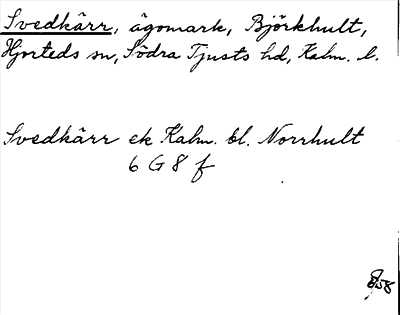 Svedkärr, ägomark, Björkhult,
Hjorteds sn, Södra Tjusts hd, Kalm. l.
Svedkärr ek Kalm. bl. Norrhult
6 G 8 f
8/58